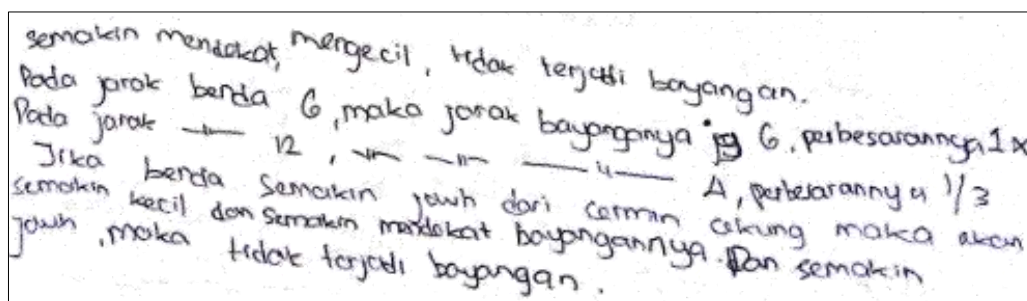 semakin mendekat, mengecil, tidak terjadi bayangan.
Pada jarak benda 6, maka jarak bayanganya 6, perbesarannya 1x
Pada jarak —〃— 12, —〃— —〃— —〃— 4, perbesarannya 1/3
Jika benda semakin jauh dari cermin cekung maka akan
semakin kecil dan semakin mendekat bayangannya. Dan semakin
jauh, maka tidak terjadi bayangan.